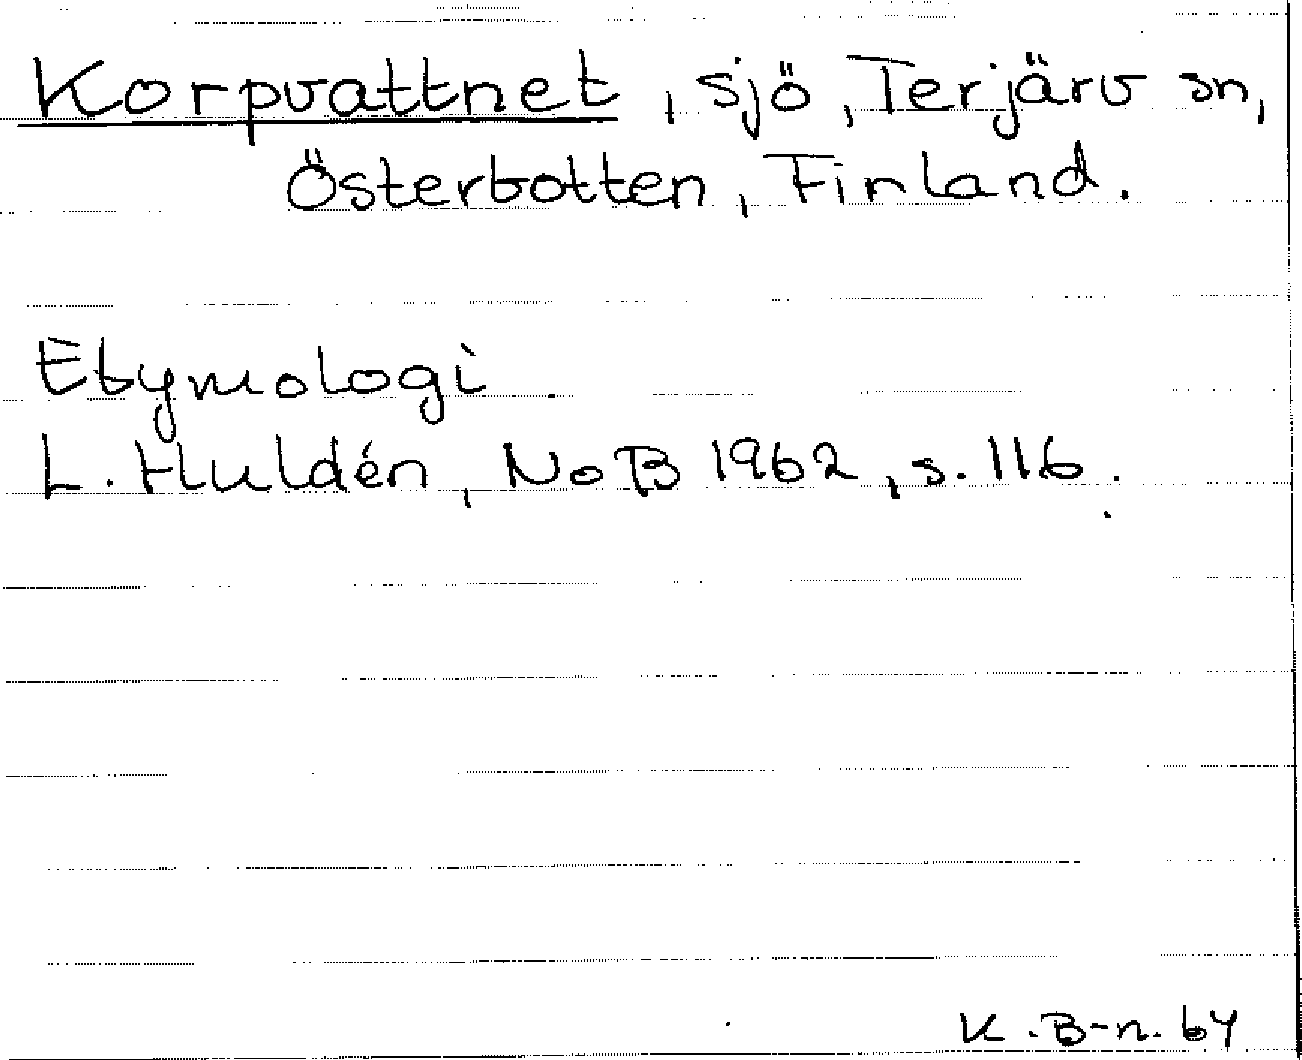 Korpvattnet, sjö, Terjärv sn,
Österbotten, Finland.
Etymologi
L. Huldén, NoB 1962, s. 116.
K. B-n. 64